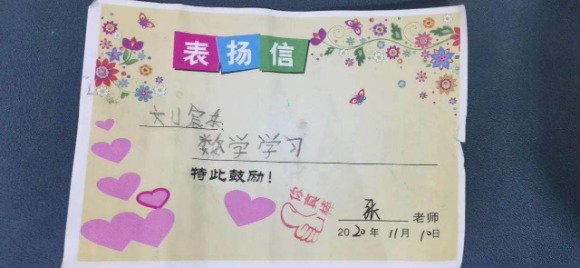 表扬信
数学学习
特此鼓励！
你真棒
张 老师
2020年 11月 10日